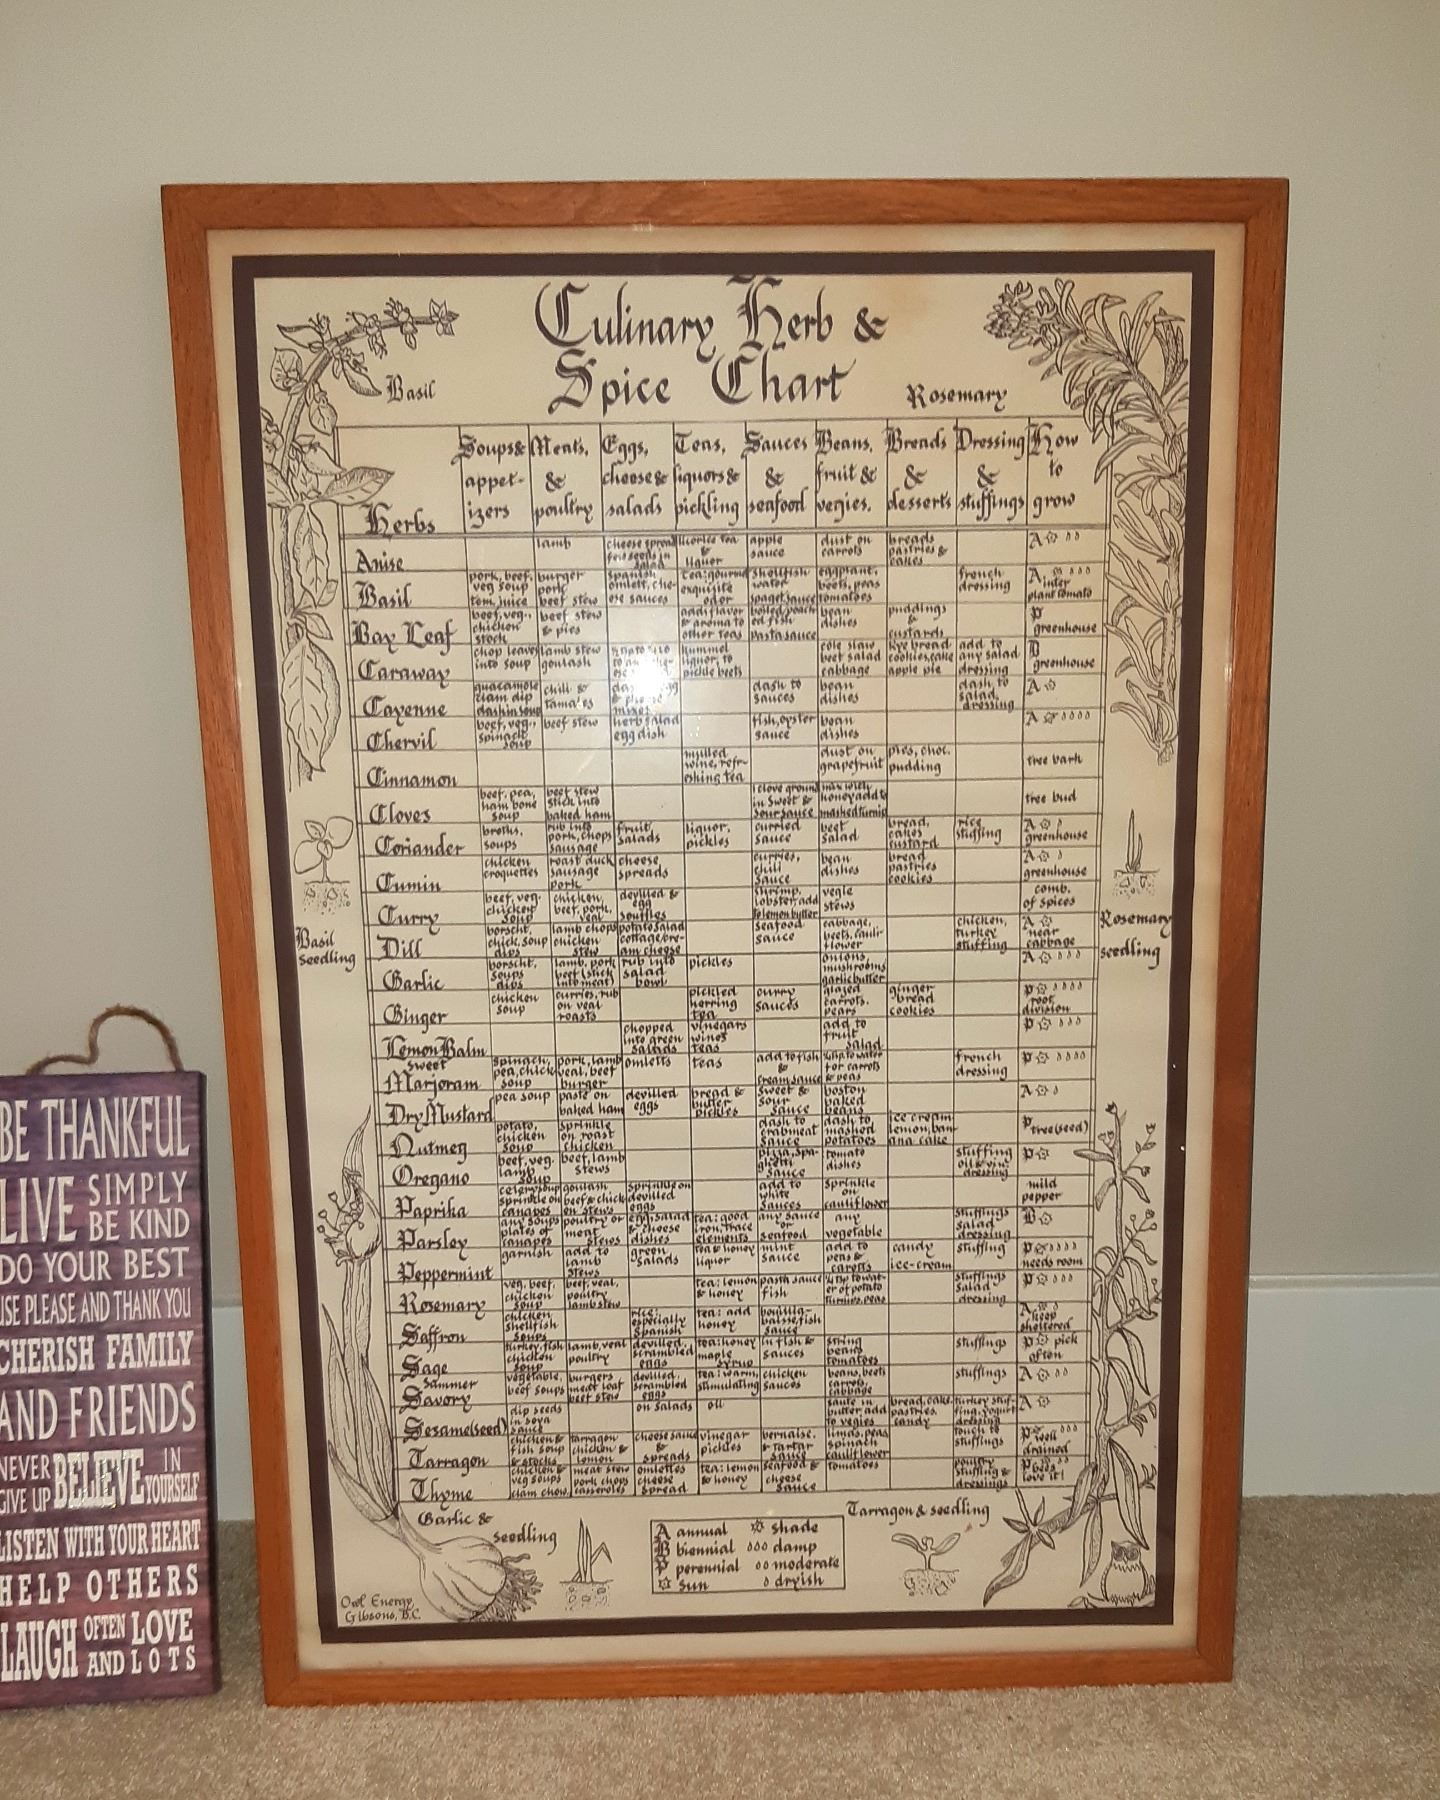 Culinary Herb &
Spice Chart
Basil
Rosemary
Herbs
Soups &
appet-
izers
Meats,
&
poultry
Eggs,
cheese &
salads
Teas,
liquors &
pickling
Sauces
&
seafood
Beans,
fruit &
vegies.
Breads
&
desserts
Dressing
&
stuffings
How
to
grow
Anise
lamb
cheese spread
few seeds in
salad
licorice tea
&
liquor
apple
sauce
dust on
carrots
breads
pastries &
cakes
A
Basil
pork, beef,
veg soup
tom. juice
burger
pork
beef stew
spanish
omlett, che-
ese sauces
tea: gourmet
exquisite
oder
shellfish
water
spaget. sauce
eggplant,
beets, peas
tomatoes
french
dressing
A
inter
plant tomato
Bay Leaf
beef, veg.,
chicken
stock
beef stew
& pies
add flavor
& aroma to
other teas
boiled, poach
ed fish
pasta sauce
bean
dishes
puddings
&
custards
P
greenhouse
Caraway
chop leaves
into soup
lamb stew
goulash
kummel
liquor, to
pickle beets
cole slaw
beet salad
cabbage
rye bread
cookies, cake
apple pie
add to
any salad
dressing
B
greenhouse
Cayenne
guacamole
clam dip
dash in soup
chili &
tamales
dash to
sauces
bean
dishes
dash to
salad
dressing
A
Chervil
beef, veg.,
spinach
soup
beef stew
herb salad
egg dish
fish, oyster
sauce
bean
dishes
A
Cinnamon
mulled
wine, refr-
eshing tea
dust on
grapefruit
pies, choc.
pudding
tree bark
Cloves
beef, pea,
ham bone
soup
beef stew
stick into
baked ham
1 clove ground
in sweet &
sour sauce
mix with
honey add to
mashed turnip
tree bud
Coriander
broths,
soups
rub into
pork, chops
sausage
fruit
salads
liquor,
pickles
curried
sauce
beet
salad
bread,
cakes
custard
rice
stuffing
A
greenhouse
Cumin
chicken
croquettes
roast duck
sausage
pork
cheese
spreads
curries,
chili
sauce
bean
dishes
bread
pastries
cookies
A
greenhouse
Curry
beef, veg.
chicken
soup
chicken,
beef, pork,
veal
devilled &
egg
souffles
shrimp,
lobster, add
to lemon butter
vegie
stews
comb.
of spices
Dill
borscht,
chick. soup
dips
lamb chops
chicken
stew
potato salad
cottage/cre-
am cheese
seafood
sauce
cabbage,
beets, cauli-
flower
chicken,
turkey
stuffing
A
near
cabbage
Garlic
borscht,
soups
dips
lamb, pork
beef (stick
into meat)
rub into
salad
bowl
pickles
onions,
mushrooms
garlic butter
A
Ginger
chicken
soup
curries, rub
on veal
roasts
pickled
herring
tea
curry
sauces
glazed
carrots.
pears
ginger
bread
cookies
P
root
division
Lemon Balm
chopped
into green
salads
vinegars
wines
teas
add to
fruit
salad
P
Sweet
Marjoram
spinach,
pea, chick
soup
pork, lamb
veal, beef
burger
omletts
teas
add to fish
&
cream sauce
for carrots
& peas
french
dressing
P
Dry Mustard
pea soup
paste on
baked ham
devilled
eggs
bread &
butter
pickles
sweet &
sour
sauce
boston
baked
beans
A
Nutmeg
potato,
chicken
soup
sprinkle
on roast
chicken
dash to
crabmeat
sauce
dash to
mashed
potatoes
ice cream
lemon, ban-
ana cake
P
tree (seed)
Oregano
beef, veg.
lamb
soup
beef, lamb
stews
pizza, spa-
ghetti
sauce
tomato
dishes
stuffing
oil & vin.
dressing
P
Paprika
celery soup
sprinkle on
canapes
goulash
beef & chick
en stews
sprinkle on
devilled
eggs
add to
white
sauces
sprinkle
on
cauliflower
mild
pepper
Parsley
any soups
plates of
canapes
poultry or
meat
stews
egg, salad
& cheese
dishes
tea: good
iron, trace
elements
any sauce
or
seafood
any
vegetable
stuffings
salad
dressing
B
Peppermint
garnish
add to
lamb
stews
green
salads
tea & honey
liquor
mint
sauce
add to
peas &
carotts
candy
ice-cream
stuffing
P
needs room
Rosemary
veg. beef,
chicken
soup
beef, veal,
poultry
lamb stew
tea: lemon
& honey
pasta sauce
fish
stuffings
salad
dressing
P
Saffron
chicken
shellfish
soups
rice:
especially
spanish
tea: add
honey
bouilla-
baisse fish
sauce
A
keep
sheltered
Sage
turkey, fish
chicken
soup
lamb, veal
poultry
devilled,
scrambled
eggs
tea: honey
maple
syrup
in fish &
sauces
string
beans
tomatoes
stuffings
P pick
often
Summer
Savory
vegetable,
beef soups
burgers
meat loaf
beef stew
devilled,
scrambled
eggs
tea: warm,
stimulating
chicken
sauces
beans, beets
carrots,
cabbage
stuffings
A
Sesame (seed)
dip seeds
in soya
sauce
on salads
oil
saute in
butter, add
to vegies
bread, cake,
pastries,
candy
turkey stuf-
fing, yogurt
dressing
A
Tarragon
chicken &
fish soup
& stocks
tarragon
chicken &
lemon
cheese sauce
&
spreads
vinegar
pickles
bernaise,
& tartar
sauce
limas, peas
spinach
cauliflower
touch to
stuffings
P well
drained
Thyme
chicken &
veg soups
clam chow.
meat stew
pork chops
casseroles
omlettes
cheese
spread
tea: lemon
& honey
seafood &
cheese
sauce
tomatoes
poultry
stuffing &
dressings
P bees
love it!
Basil
seedling
Rosemary
seedling
Garlic &
seedling
Tarragon & seedling
A annual
B biennial
P perennial
sun
shade
damp
moderate
dryish
Owl Energy
Gibsons, B.C.
BE THANKFUL
LIVE SIMPLY
BE KIND
DO YOUR BEST
USE PLEASE AND THANK YOU
CHERISH FAMILY
AND FRIENDS
NEVER
GIVE UP BELIEVE IN
YOURSELF
LISTEN WITH YOUR HEART
HELP OTHERS
LAUGH OFTEN LOVE
AND LOTS